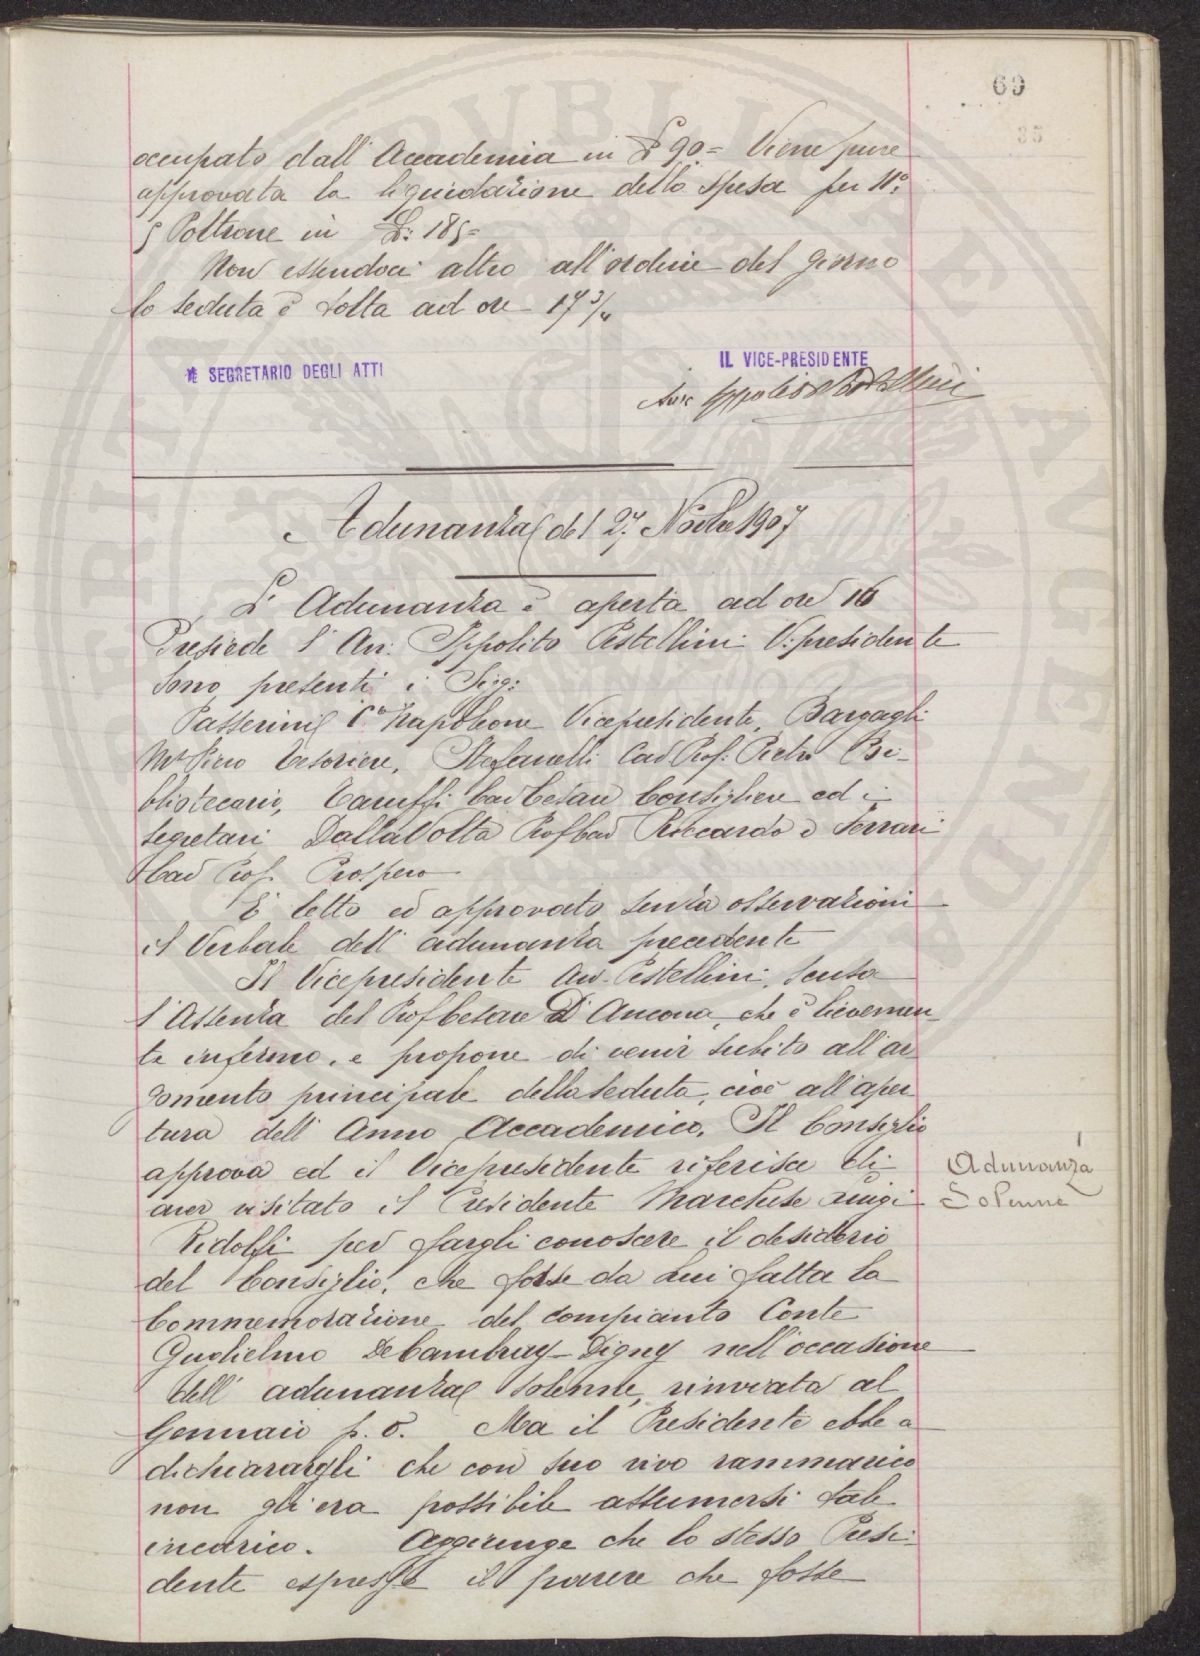 60
35
occupato dall'Accademia in £ 90 = Viene pure
approvata la liquidazione della spesa per N.°
5 Poltrone in £: 185 =
Non essendoci altro all'ordine del giorno
la seduta è solta ad ore 17 3/4
IL SEGRETARIO DEGLI ATTI
IL VICE-PRESIDENTE
Avv Ippolito Pestellini
Adunanza del 27 Novbre 1907
L'Adunanza è aperta ad ore 16
Presiede l'Avv: Ippolito Pestellini V. presidente
sono presenti i Sig:
Passerini C.te Napoleone Vicepresidente, Bargagli
Mse Piero Tesoriere, Stefanelli Cav Prof: Pietro Bi-
bliotecario, Taruffi Cav Cesare Consigliere ed i
segretari Dalla Volta Prof Cav Riccardo e Ferrari
Cav Prof. Prospero
È letto ed approvato senza osservazioni
il Verbale dell'adunanza precedente
Il Vicepresidente Avv. Pestellini, scusa
l'Assenza del Prof Cesare D'Ancona, che è lievemen-
te infermo, e propone di venir subito all'ar
gomento principale della seduta, cioè all'aper
tura dell'Anno Accademico. Il Consiglio
approva ed il Vicepresidente riferisce di
aver visitato il Presidente Marchese Luigi
Ridolfi per fargli conoscere il desiderio
del Consiglio, che fosse da Lui fatta la
Commemorazione del compianto Conte
Guglielmo De Cambray-Digny nell'occasione
dell'adunanza solenne, rinviata al
Gennaio p. v. Ma il Presidente ebbe a
dichiarargli che con suo vivo rammarico
non gli era possibile assumersi tale
incarico. Aggiunge che lo stesso Presi-
dente espresse il parere che fosse
Adunanza
Solenne